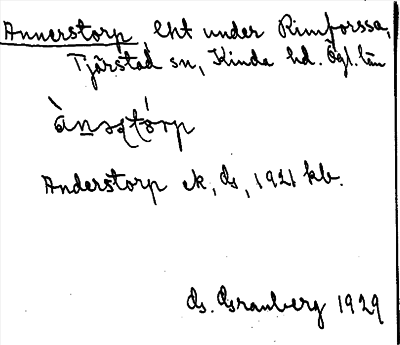 Annerstorp, lht under Rimforssa,
Tjärstad sn, Kinda hd. Ögl. län
Anderstorp ek, ds, 1921 kb.
Gs. Granberg 1929